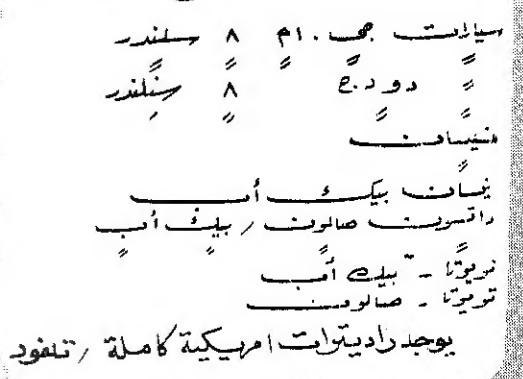 سيارات جي . ام ٨ سلندر
〃 〃 〃 〃 〃
〃 دودج ٨ سلندر
〃 〃 〃
نيسان
〃
نيسان بيك أب
داتسون صالون / بيك أب
〃 〃 〃 〃
تويوتا - بيك أب
تويوتا - صالون
يوجد راديترات امريكية كاملة /